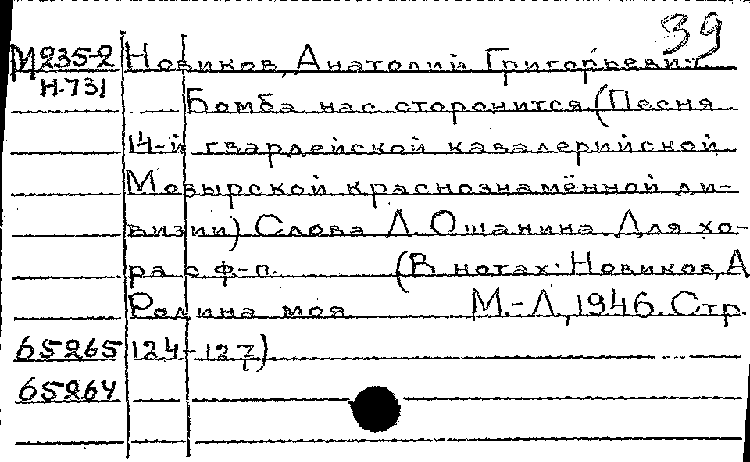 39
М235-2 Новиков, Анатолий Григорьевич
Н-731 Бомба нас сторонится (Песня
14-й гвардейской кавалерийской
Мозырской краснознамённой ди-
визии) Слова Л. Ошанина. Для хо-
ра с ф-п. (В нотах: Новиков, А
Родина моя М.-Л., 1946. Стр.
65265 124-127)
65264